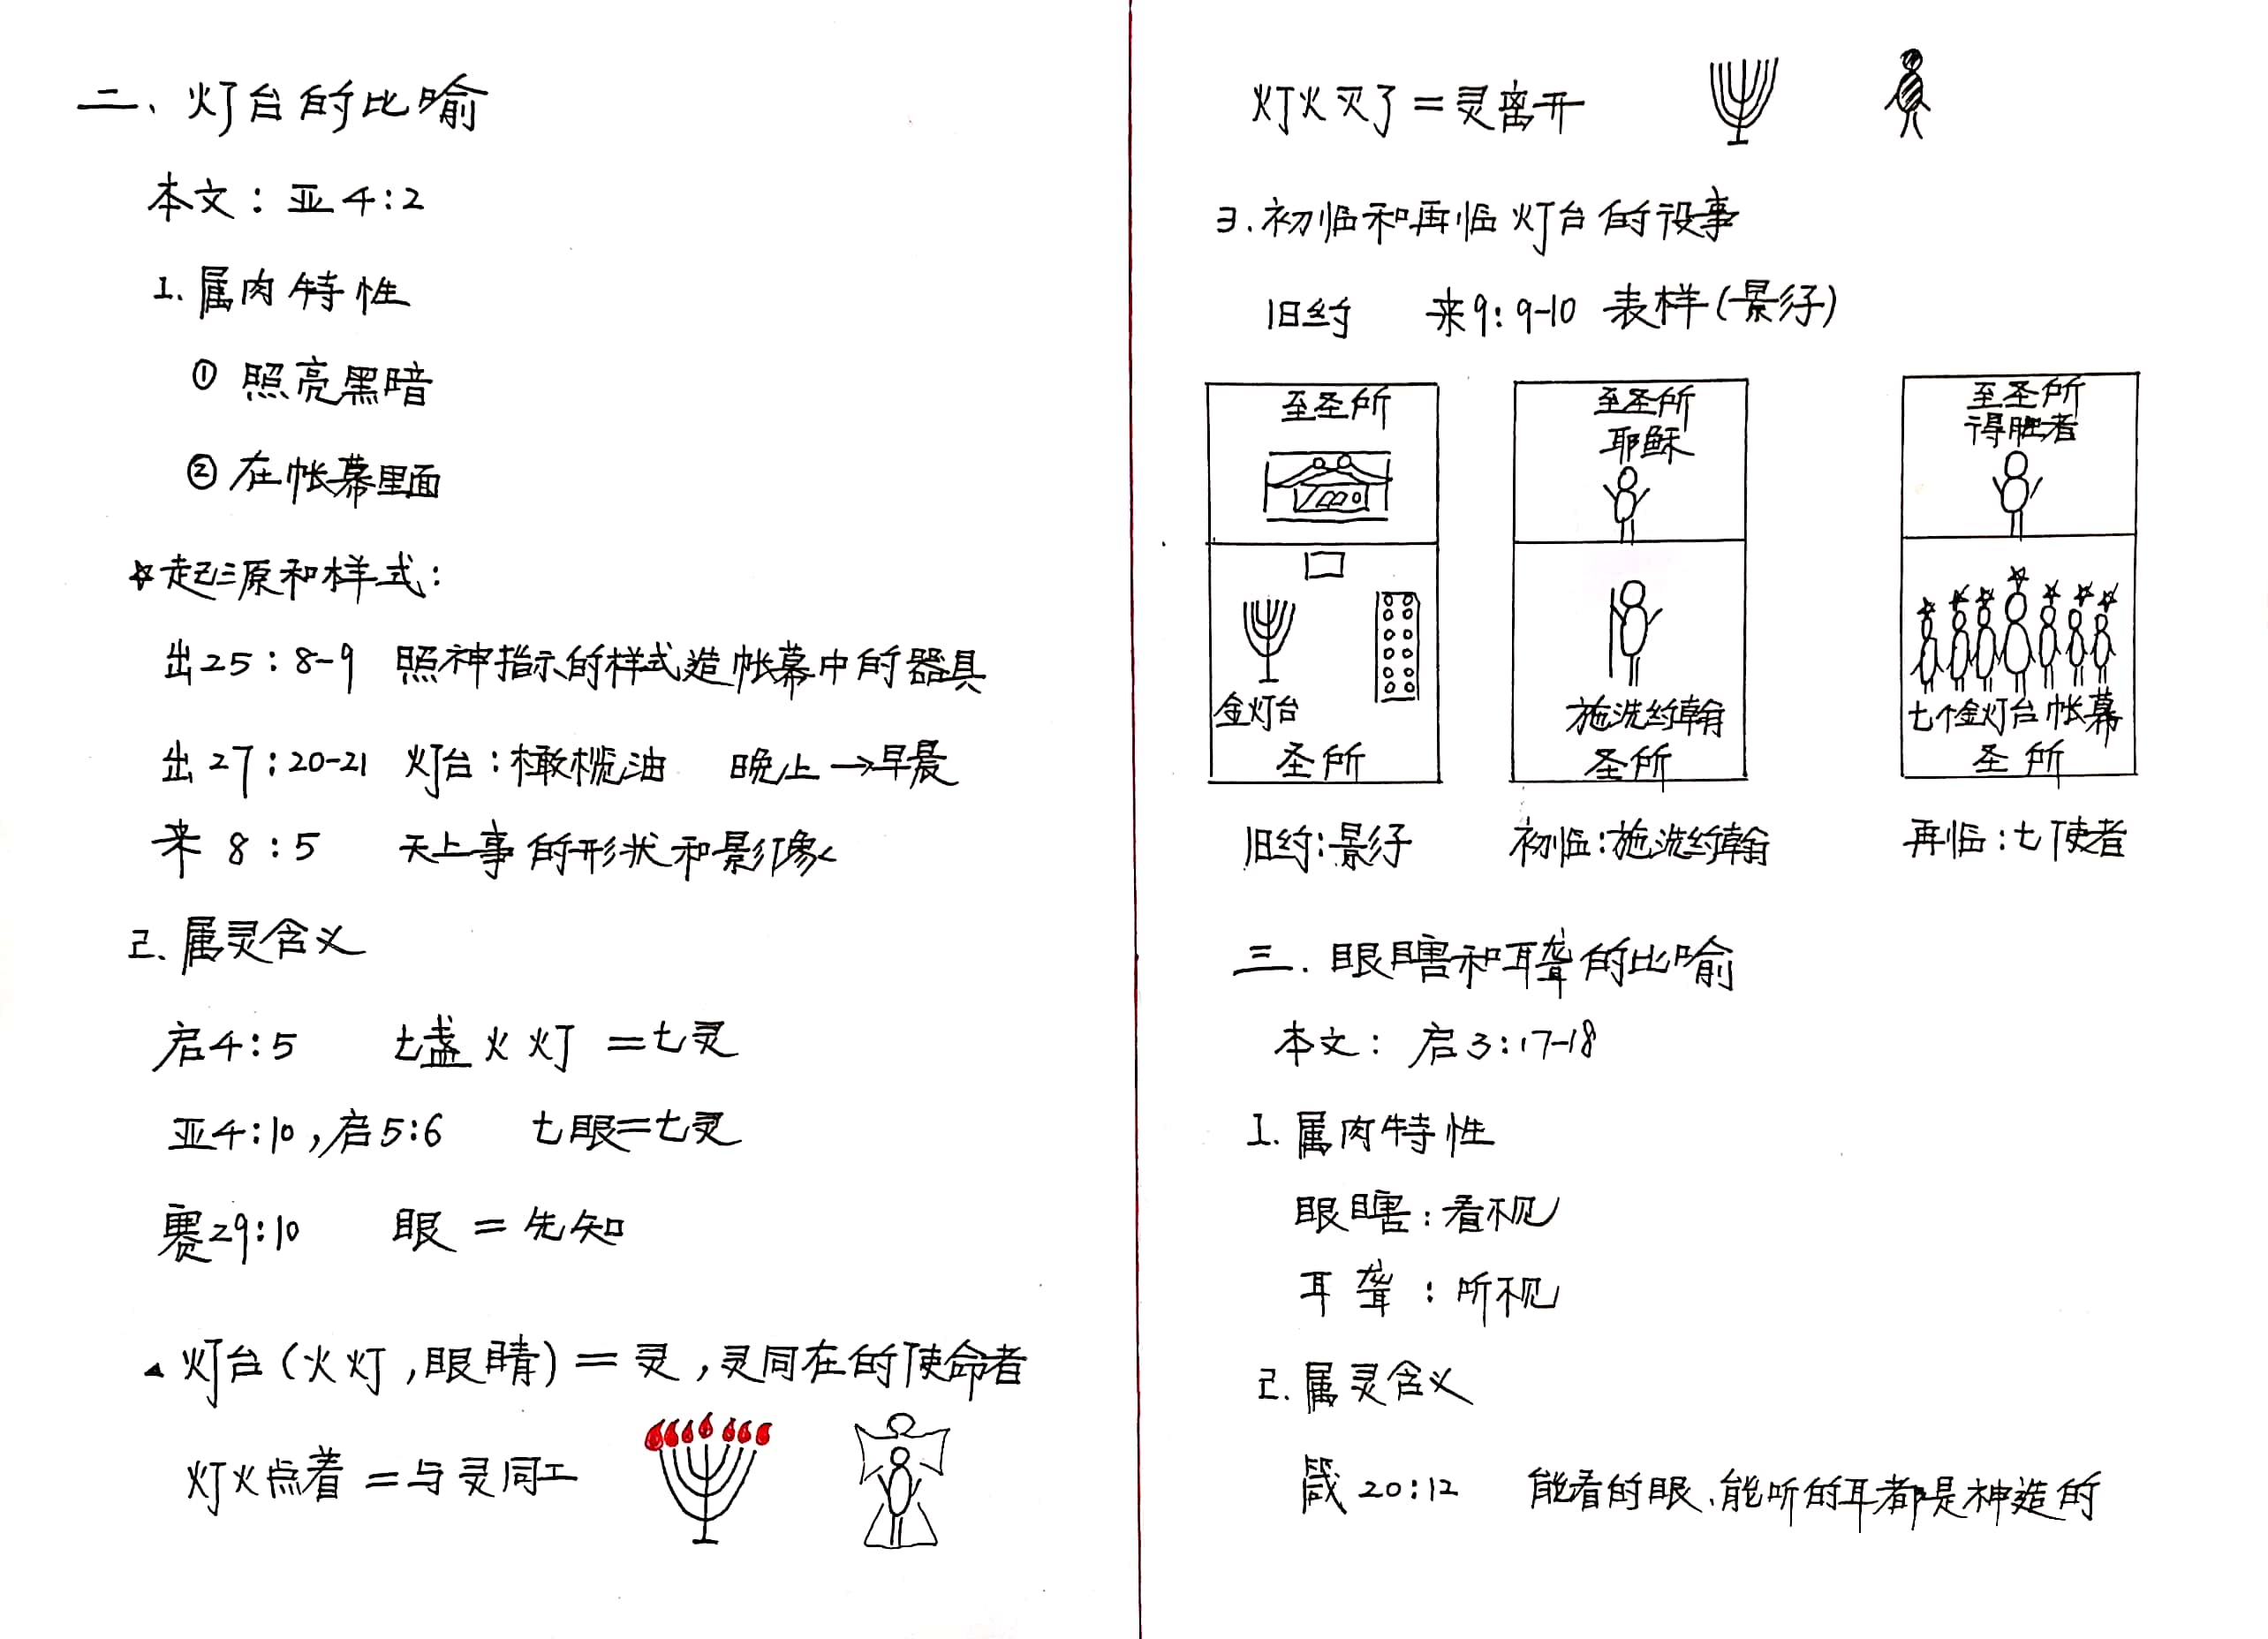 二、灯台的比喻
本文：亚4:2
1. 属肉特性
① 照亮黑暗
② 在帐幕里面
☆起源和样式：
出25：8-9 照神指示的样式造帐幕中的器具
出27：20-21 灯台：橄榄油 晚上→早晨
来 8：5 天上事的形状和影像
2. 属灵含义
启4:5 七盏火灯=七灵
亚4:10，启5:6 七眼=七灵
赛29:10 眼=先知
▲灯台（火灯，眼睛）=灵，灵同在的使命者
灯火点着=与灵同工
灯火灭了=灵离开
3. 初临和再临灯台的役事
旧约 来9：9-10 表样（景仔）
至圣所
金灯台
圣所
至圣所
耶稣
施洗约翰
圣所
至圣所
得胜者
七个金灯台帐幕
圣所
旧约：景仔
初临：施洗约翰
再临：七使者
三. 眼瞎和耳聋的比喻
本文： 启3：17-18
1. 属肉特性
眼瞎：看不见
耳聋：听不见
2. 属灵含义
箴20:12 能看的眼、能听的耳都是神造的